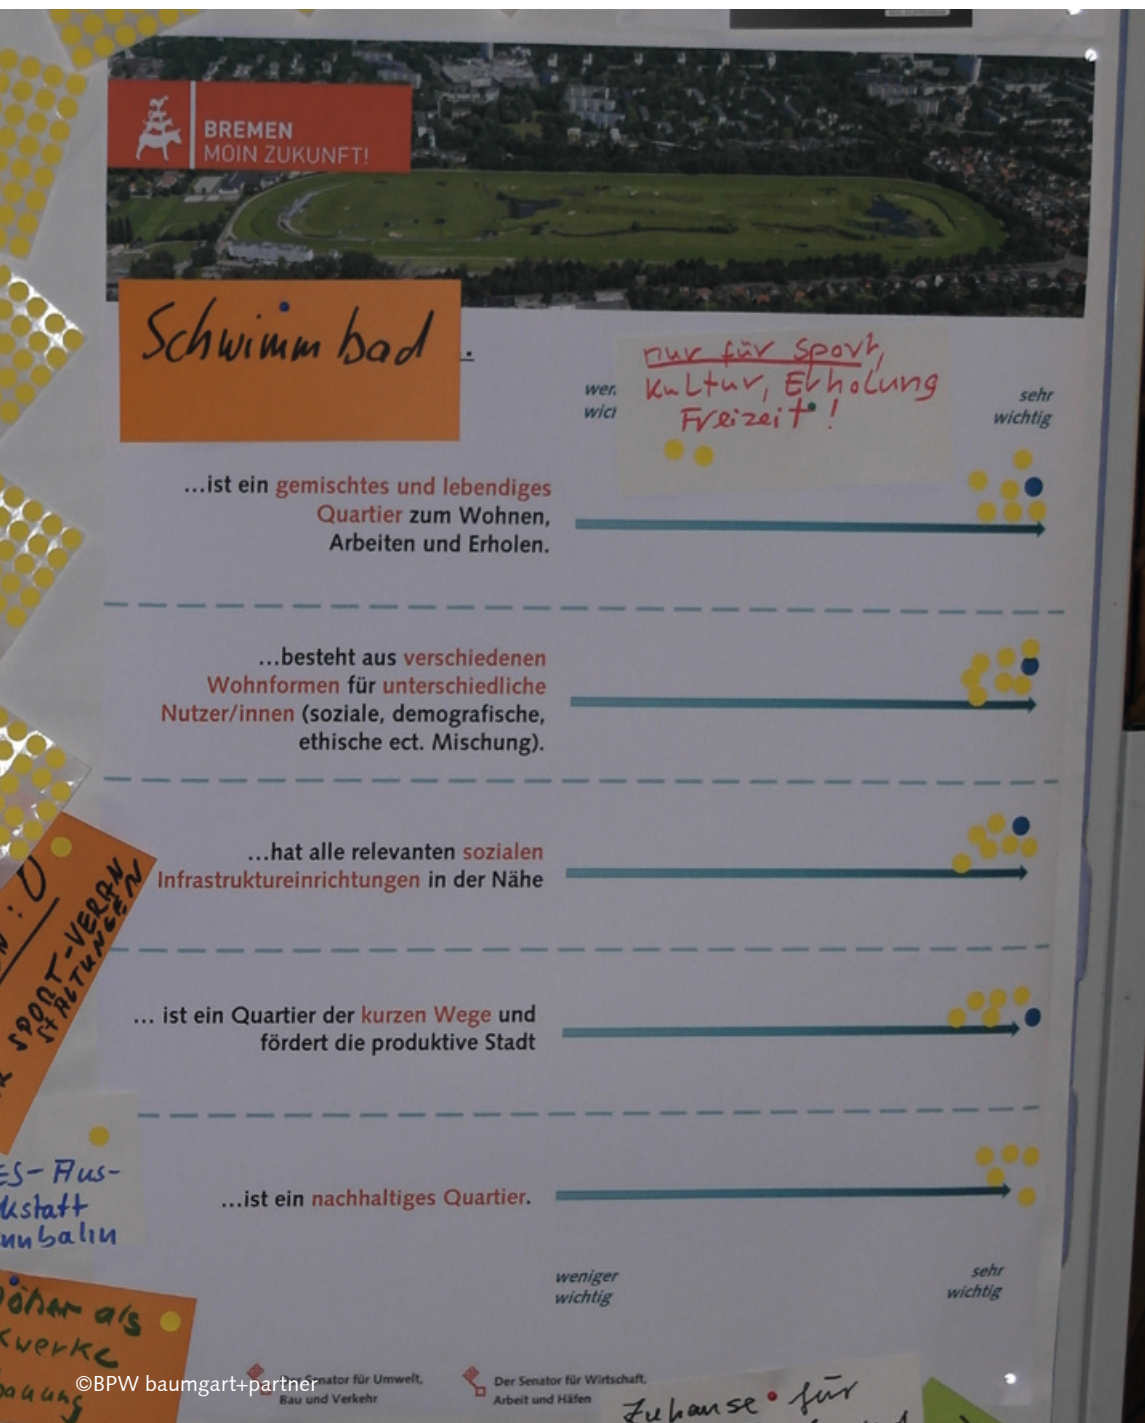 BREMEN
MOIN ZUKUNFT!
Schwimmbad
nur für Sport,
Kultur, Erholung
Freizeit!
sehr
wichtig
...ist ein gemischtes und lebendiges
Quartier zum Wohnen,
Arbeiten und Erholen.
...besteht aus verschiedenen
Wohnformen für unterschiedliche
Nutzer/innen (soziale, demografische,
ethische ect. Mischung).
...hat alle relevanten sozialen
Infrastruktureinrichtungen in der Nähe
SPORT-VERAN
STALTUNGEN
... ist ein Quartier der kurzen Wege und
fördert die produktive Stadt
...ist ein nachhaltiges Quartier.
weniger
wichtig
sehr
wichtig
als
©BPW baumgart+partner
Der Senator für Umwelt,
Bau und Verkehr
Der Senator für Wirtschaft,
Arbeit und Häfen
Zuhause für